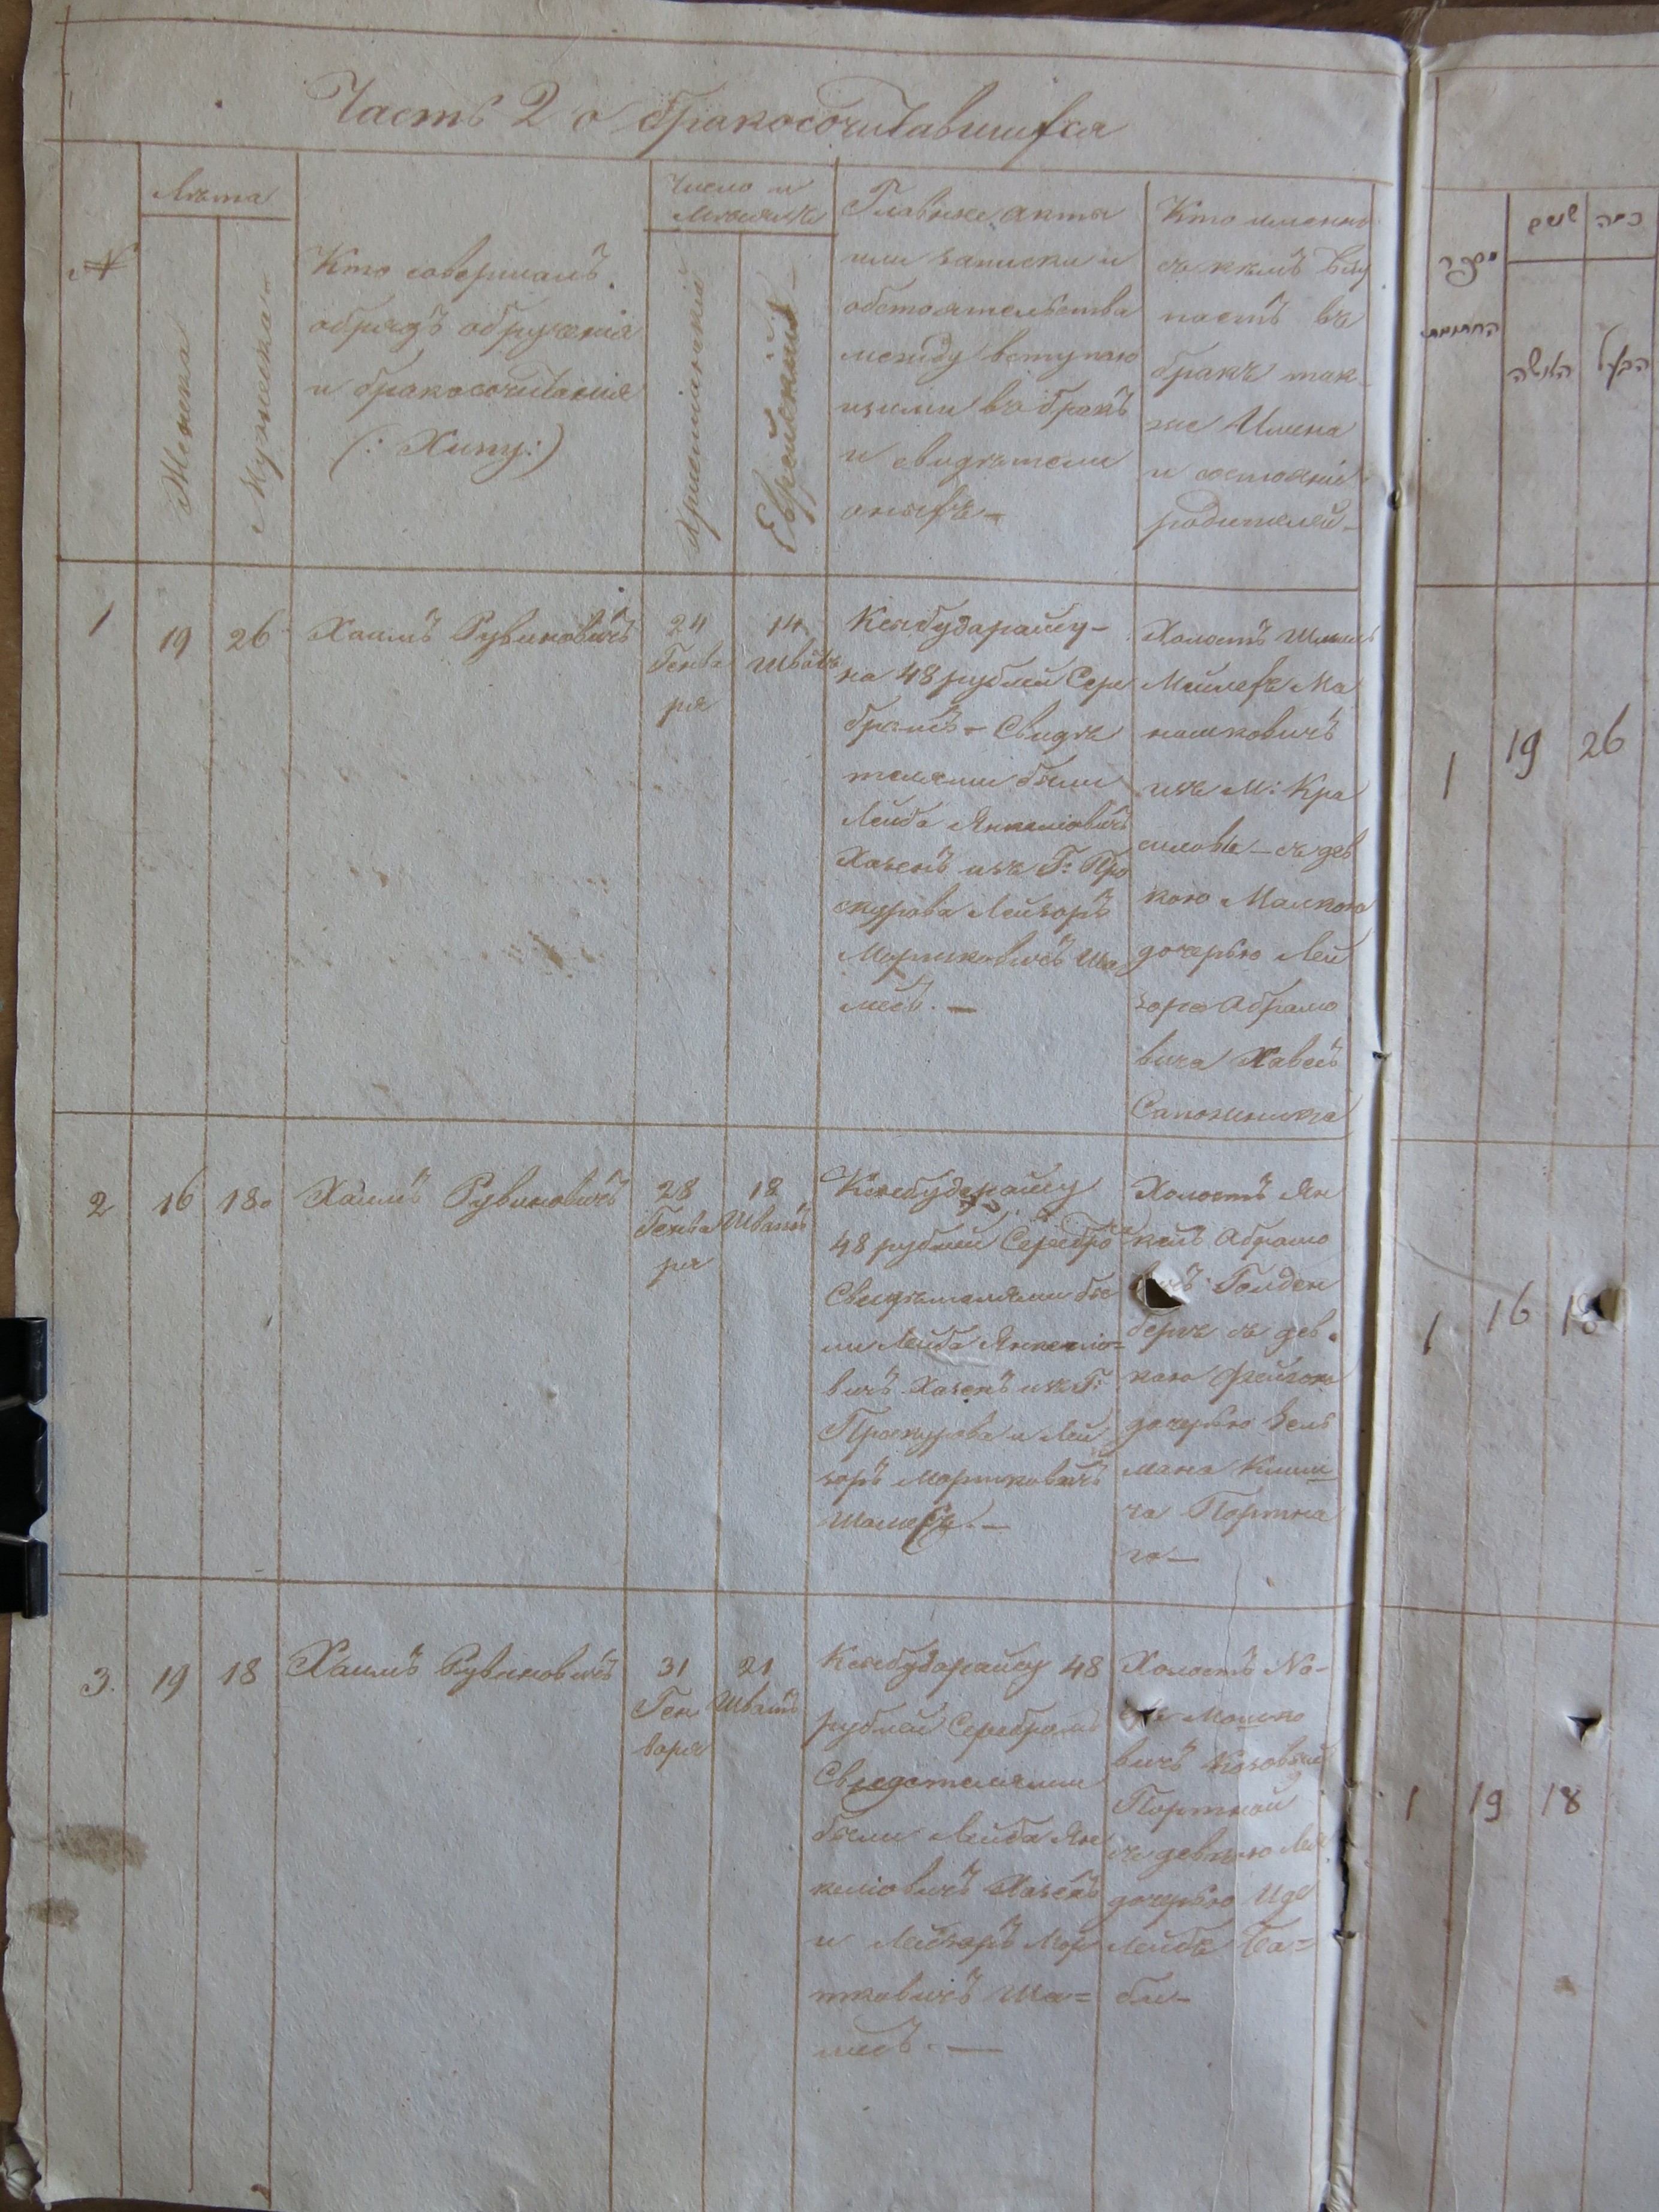 Часть 2 о бракосочитавшихся
№
Лѣта
Женска
Мужеска
Кто совершалъ
обрядъ обрученія
и бракосочитанія
(: Хипу :)
Число и
Мѣсяцъ
Христіанскій
Еврейскій
Главные акты
или записки и
обстоятельства
между вступаю
щими въ бракъ
и свидѣтели
оныхъ
Кто именно
съ кемъ всту
паетъ въ
бракъ так
же Имена
и состояніе
родителей
1
19
26
Хаимъ Рувиновичъ
24
Генва
ря
14
Шватъ
на 48 рублей Сере
бромъ Свидѣ
телями были
Лейба Янкеліовичъ
Хазенъ изъ Г: Про
скурова Лейзоръ
Мортковичъ Ша
месъ. —
Холостъ
Мейлехъ Ма
нашковичъ
изъ М: Кра
силова — съ дев
кою Малкою
дочерью Лей
зора Абрамо
вича
Сапожника
2
16
18
Хаимъ Рувиновичъ
28
Генва
ря
18
Шватъ
48 рублей Серебро
Свидѣтелями бы
ли Лейба Янкеліо=
вичъ Хазенъ изъ Г:
Проскурова и Лей
зоръ Мортковичъ
Шамесъ. —
Холостъ Ян
кель Абрамо
вичъ Голден
бергъ съ дев
кою Фейгою
дочерью Зель
мана
Портна
го —
3.
19
18
Хаимъ Рувиновичъ
31
Ген
варя
21
Шватъ
48
рублей Серебромъ
Сведетелями
были Лейба Ян
келіовичъ Хазенъ
и Лейзоръ Мор
тковичъ Ша=
месъ. —
Холостъ
Мошко
вичъ
Портной
съ девкою
дочерью
Лейбы
מספר
החתונות
שנים
האשה
כמה
1
19
26
1
16
18
1
19
18